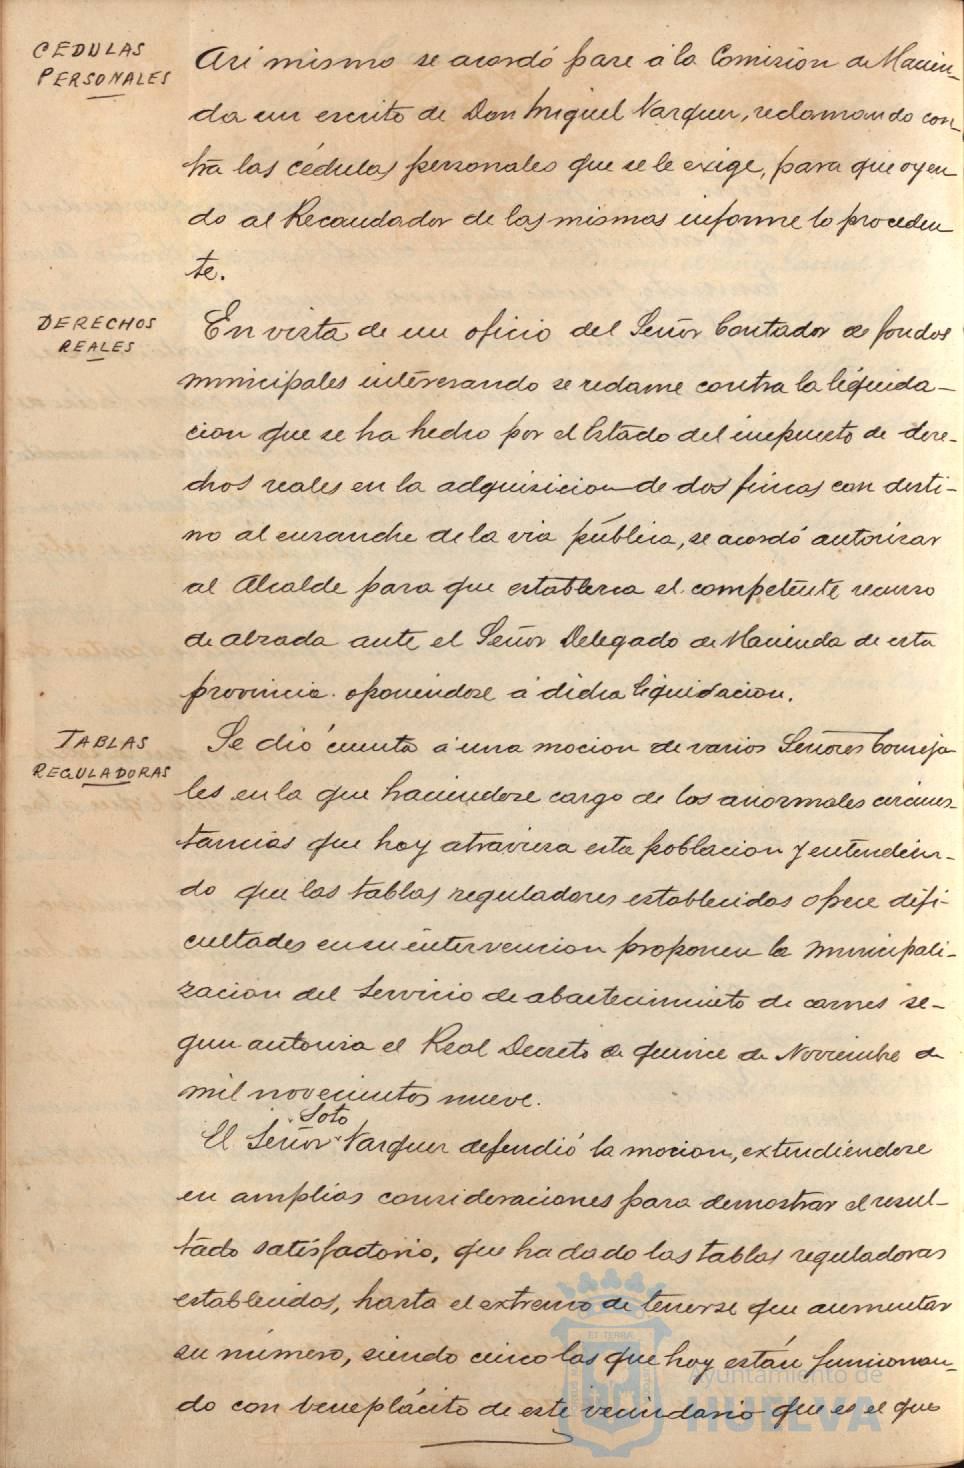 CEDULAS
PERSONALES
Asi mismo se acordó pase á la Comision de Hacien-
da un escrito de Don Miguel Vazquez, reclamando con-
tra las cédulas personales que se le exige, para que oyen
do al Recaudador de las mismas informe lo proceden
te.
DERECHOS
REALES
En vista de un oficio del Señor Contador de fondos
municipales interesando se reclame contra la liquida-
cion que se ha hecho por el Estado del impuesto de dere-
chos reales en la adquisicion de dos fincas con desti-
no al ensanche de la via pública, se acordó autorizar
al Alcalde para que establezca el competente recurso
de alzada ante el Señor Delegado de Hacienda de esta
provincia oponiendose á dicha liquidacion.
TABLAS
REGULADORAS
Se dió cuenta á una mocion de varios Señores Conceja
les en la que haciendose cargo de las anormales circuns-
tancias que hoy atraviesa esta poblacion y entendien-
do que las tablas reguladores establecidas ofrece difi-
cultades en su intervencion proponen la municipali-
zacion del servicio de abastecimiento de carnes se-
gun autoriza el Real Decreto de quince de Noviembre de
mil novecientos nueve.
Soto
El Señor Vazquez defendió la mocion, extendiendose
en amplias consideraciones para demostrar el resul-
tado satisfactorio, que ha dado las tablas reguladoras
establecidas, hasta el extremo de tenerse que aumentar
su número, siendo cinco las que hoy están funcionan-
do con beneplácito de este vecindario que es el que
Ayuntamiento de
HUELVA